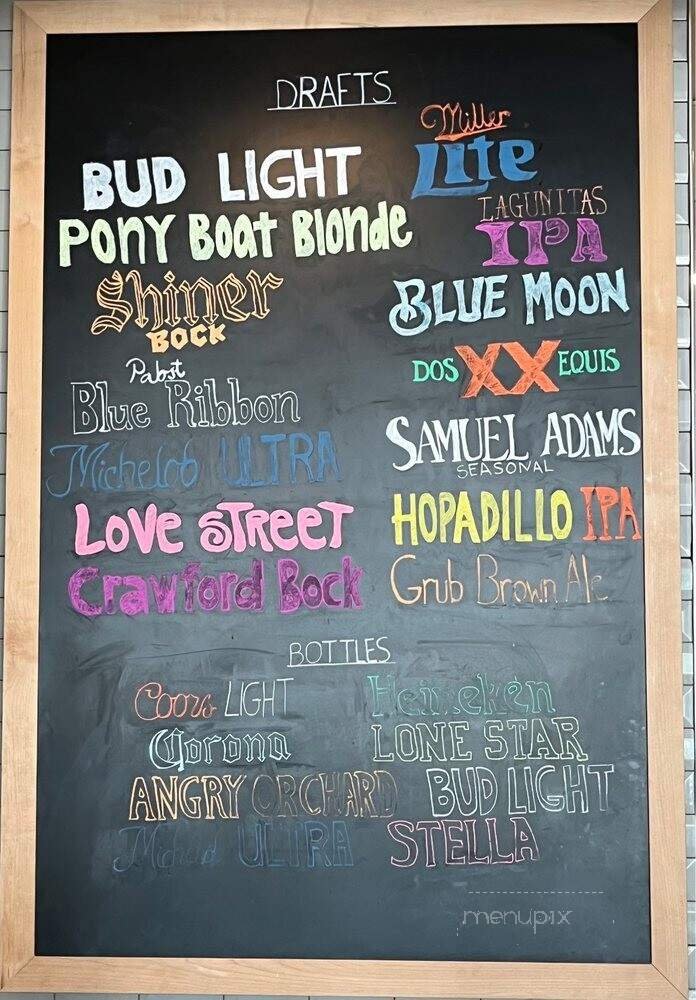 DRAFTS
BUD LIGHT
Miller
Lite
PONY Boat Blonde
LAGUNITAS
IPA
Shiner
BOCK
BLUE MOON
Pabst
Blue Ribbon
DOS XX EQUIS
Michelob ULTRA
SAMUEL ADAMS
SEASONAL
LOVE STREET
HOPADILLO IPA
Crawford Bock
Grub Brown Ale
BOTTLES
Coors LIGHT
Heineken
Corona
LONE STAR
ANGRY ORCHARD
BUD LIGHT
ULTRA
STELLA
menupix